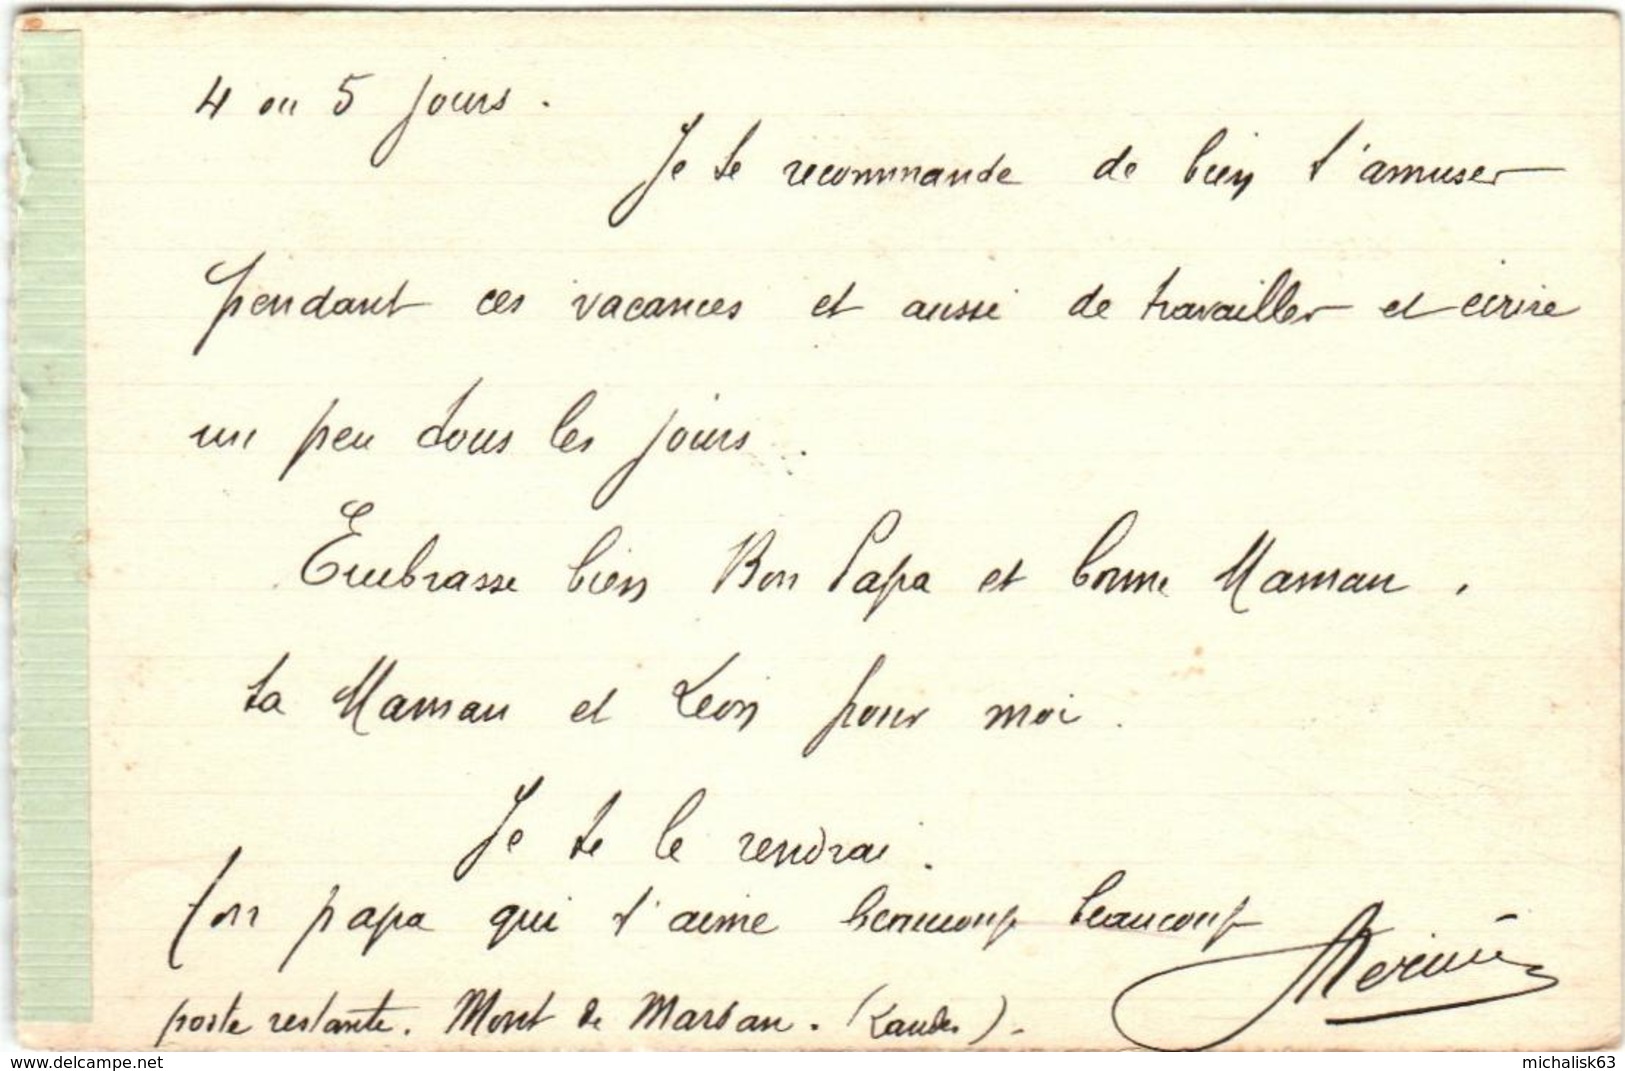 4 ou 5 jours.
Je te recommande de bien t'amuser
pendant ces vacances et aussi de travailler et écrire
un peu tous les jours.
Embrasse bien Bon Papa et bonne Maman,
ta Maman et Léon pour moi.
Je te le rendrai.
Ton papa qui t'aime beaucoup beaucoup
poste restante. Mont de Marsan. (Landes).
michalisk63